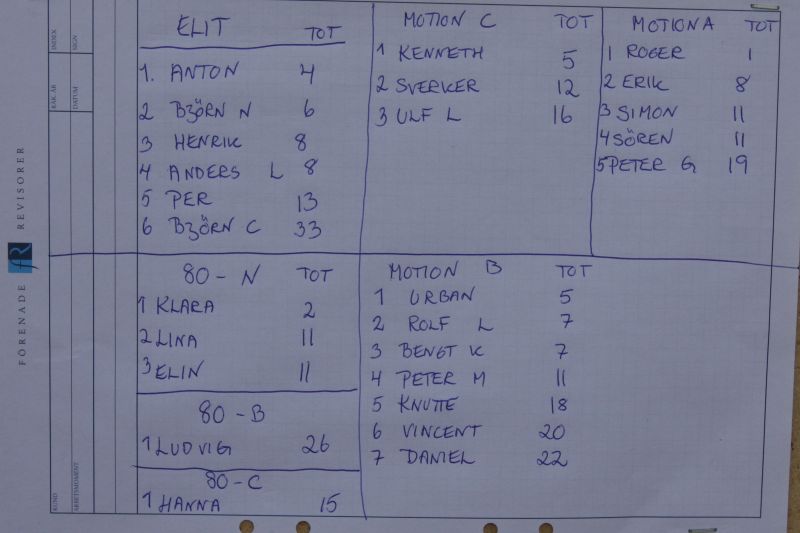 ELIT TOT
1. ANTON 4
2 BJÖRN N 6
3 HENRIK 8
4 ANDERS L 8
5 PER 13
6 BJÖRN C 33
MOTION C TOT
1 KENNETH 5
2 SVERKER 12
3 ULF L 16
MOTION A TOT
1 ROGER 1
2 ERIK 8
3 SIMON 11
4 SÖREN 11
5 PETER G 19
80-N TOT
1 KLARA 2
2 LINA 11
3 ELIN 11
80-B
1 LUDVIG 26
80-C
1 HANNA 15
MOTION B TOT
1 URBAN 5
2 ROLF L 7
3 BENGT K 7
4 PETER M 11
5 KNUTTE 18
6 VINCENT 20
7 DANIEL 22
FÖRENADE R REVISORER
KUND
RÄK.ÅR
INDEX
ARBETSMOMENT
DATUM
SIGN